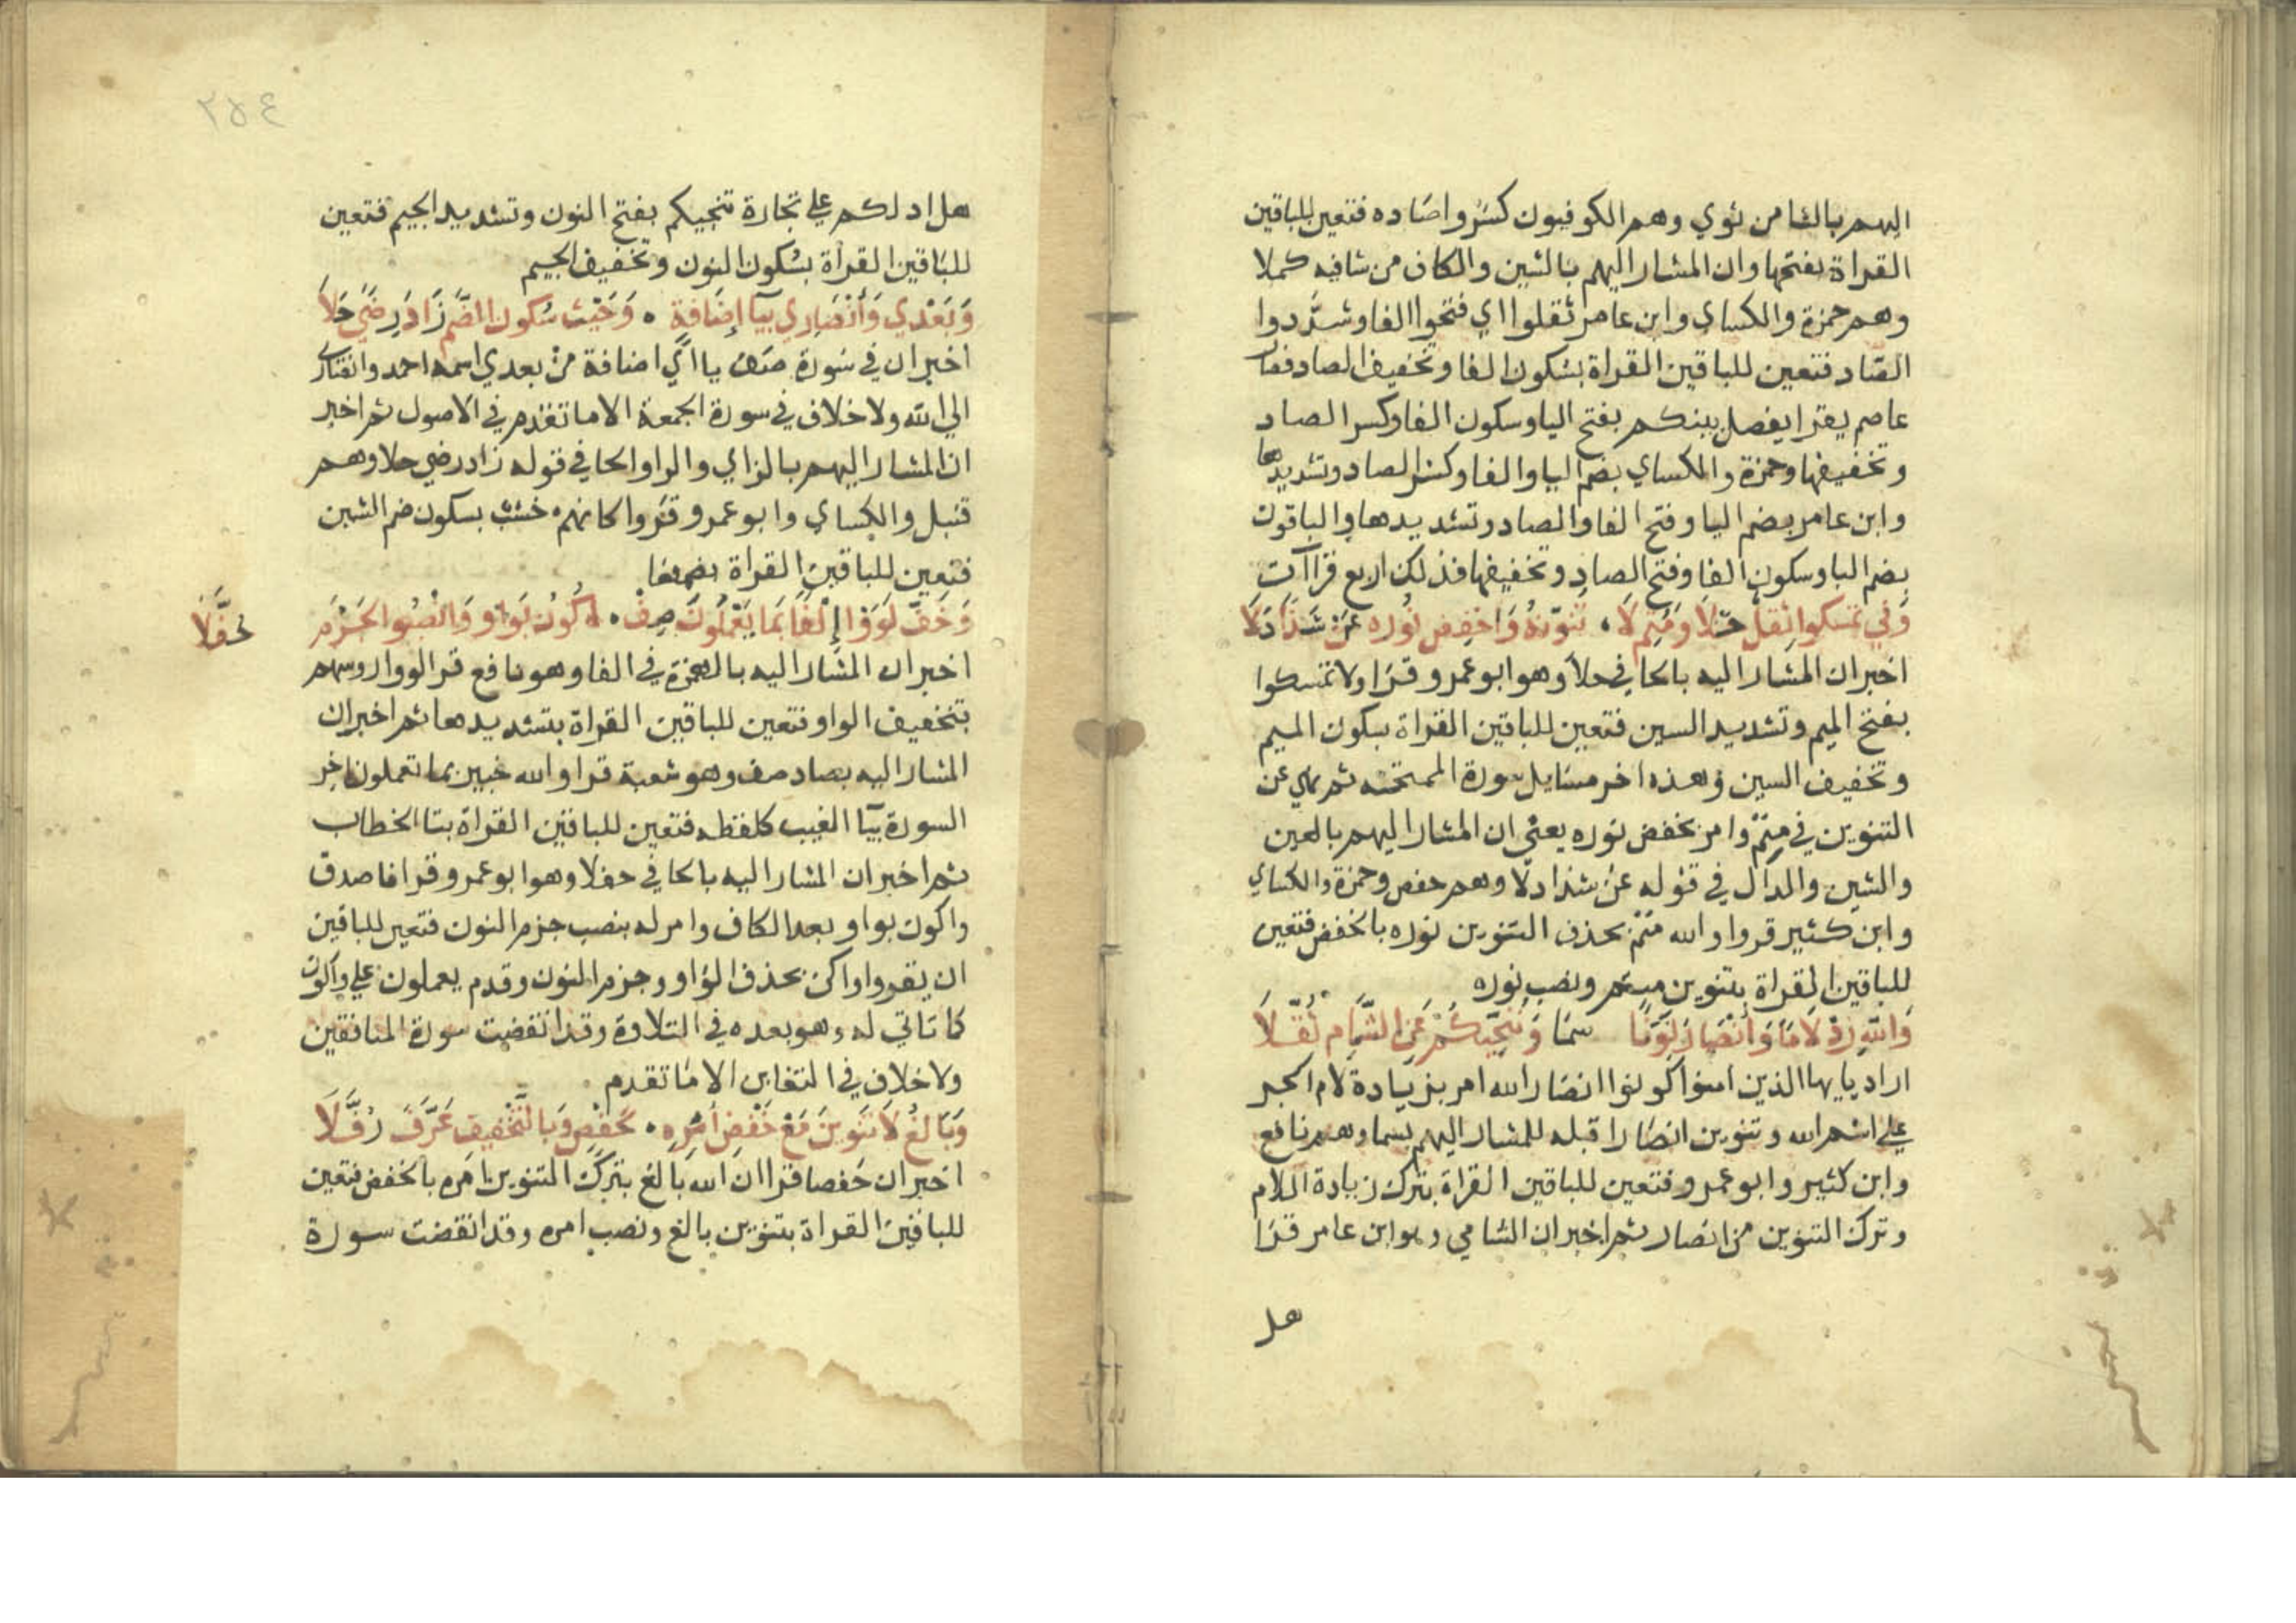 اليهم بالثا من ثوي وهم الكوفيون كسروا صاده فتعين للباقين
القراة بفتحها وان المشار اليهم بالشين والكاف من شافيه كملا
وهم حمزة والكساي وابن عامر ثقلوا اي فتحوا الفا وشدَّدوا
الصاد فتعين للباقين القراة بسكون الفا وتخفيف الصاد فصار
عاصم يقرا يفصل بينكم بفتح اليا وسكون الفا وكسر الصاد
وتخفيفها وحمزة والكساي بضم اليا والفا وكسر الصاد وتشديدها
وابن عامر بضم اليا وفتح الفا والصاد وتشديدها والباقون
بضم اليا وسكون الفا وفتح الصاد وتخفيفها فذلك اربع قراآت
وَفي تمسكوا ثقل حَلَا وَمُتِمُّ لَا ، تُنَوِّنْهُ وَاخفِض نُوره عَنْ شَذًا دَلَا
اخبر ان المشار اليه بالحا في حلا وهو ابو عمرو قرا ولا تمسكوا
بفتح الميم وتشديد السين فتعين للباقين القراة بسكون الميم
وتخفيف السين وهذه اخر مسايل سورة الممتحنه ثم نهي عن
التنوين في متمّ وامر بخفض نوره يعني ان المشار اليهم بالعين
والشين والدال في قوله عن شذا دلا وهم حفص وحمزة والكساي
وابن كثير قروا والله متم بحذف التنوين نوره بالخفض فتعين
للباقين القراة بتنوين متم ونصب نوره
وَالله زِدْ لَامًا وَأنْصَارَ نَوِّنًا سَمَا وَتُنجِّيكُمْ عَنِ الشَّامِ ثُقِّلَا
اراد يايها الذين امنوا كونوا انصار الله امر بزيادة لام الجر
علي اسم الله وتنوين انصارا قبله للمشار اليهم بسما وهم نافع
وابن كثير وابو عمرو فتعين للباقين القراة بترك زيادة اللام
وترك التنوين من انصار ثم اخبر ان الشامي وهو ابن عامر قرا
هل
٢٥٤
هل ادلكم علي تجارة تنجيكم بفتح النون وتشديد الجيم فتعين
للباقين القراة بسكون النون وتخفيف الجيم
وَبَعْدي وَأَنْصَارِي بيَآ إِضَافَةٍ ، وَخُشْبٌ سُكون الضَّمِّ زَادَ رِضًى حَلَا
اخبر ان في سورة صف ياءي اضافة من بعدي اسمه احمد وانصاري
الي الله ولا خلاف في سورة الجمعة الا ما تقدم في الاصول ثم اخبر
ان المشار اليهم بالزاي والرا والحا في قوله زاد رضي حلا وهم
قنبل والكساي وابو عمرو قروا كانهم خشب بسكون ضم الشين
فتعين للباقين القراة بضمها
وَخَفَّ لَوَوْا إِلْفًا بِمَا يَعْمَلُونَ صِفْ ، أَكُونَ بِوَاوٍ وَانْصِبُوا الجَزْمَ
حُفَّلَا
اخبر ان المشار اليه بالهمزة في الفا وهو نافع قرا لووا روسهم
بتخفيف الواو فتعين للباقين القراة بتشديدها ثم اخبر ان
المشار اليه بصاد صف وهو شعبة قرا والله خبير بما تعملون اخر
السورة بيآ الغيب كلفظه فتعين للباقين القراة بتا الخطاب
ثم اخبر ان المشار اليه بالحا في حفلا وهو ابو عمرو قرا فاصدق
واكون بواو بعد الكاف وامر له بنصب جزم النون فتعين للباقين
ان يقروا واكن بحذف الواو وجزم النون وقدم يعملون علي واكون
كما تاتي له وهو بعده في التلاوة وقد انقضت سورة المنافقين
ولا خلاف في التغابن الا ما تقدم
وَبَالِغُ لَا تَنْوِينَ مَعْ خَفْضِ أَمْرِهِ ، لحَفْصٍ وَبالتَّخْفِيفِ عَرَّفَ رُفَّلَا
اخبر ان حفصا قرا ان الله بالغ بترك التنوين امره بالخفض فتعين
للباقين القراة بتنوين بالغ ونصب امره وقد انقضت سورة